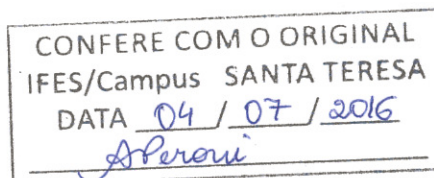 CONFERE COM O ORIGINAL
IFES/Campus SANTA TERESA
DATA 04 / 07 / 2016
APeroni